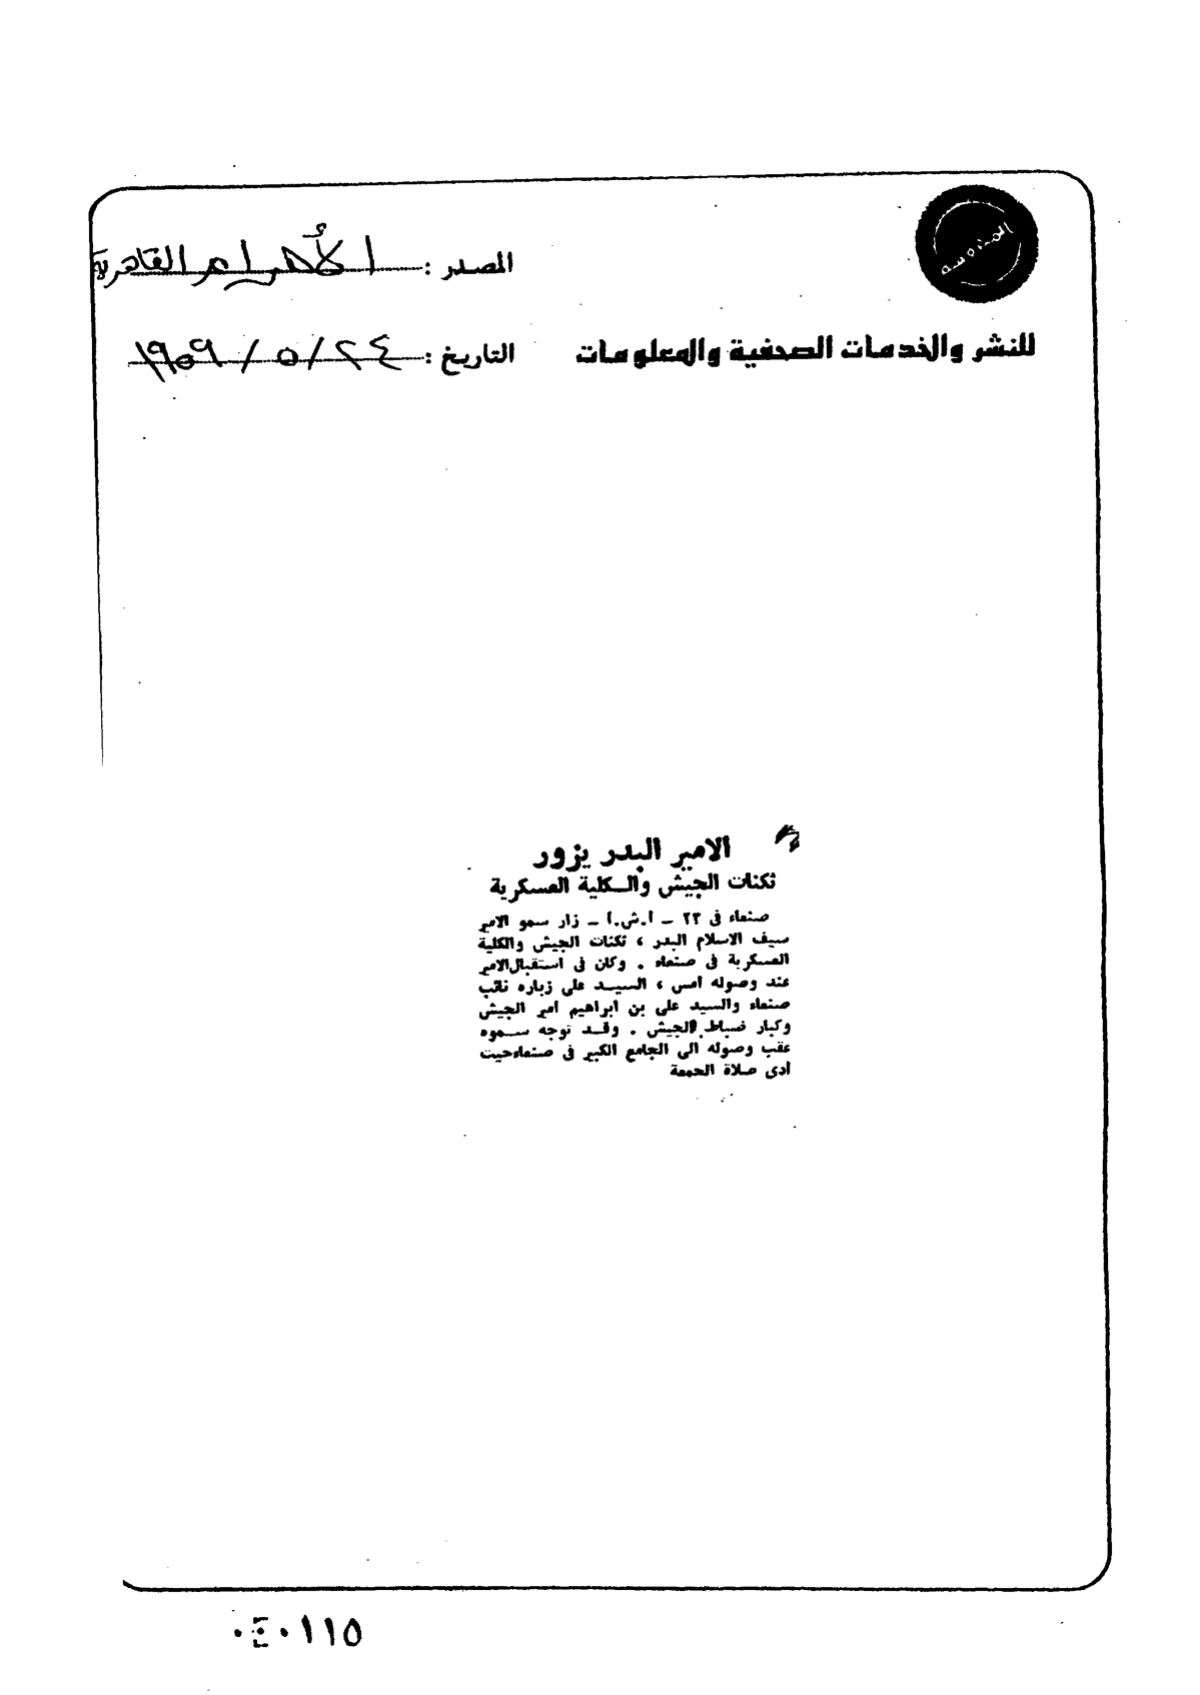 المحروسة
المصدر : الأهرام القاهرية
للنشر والخدمات الصحفية والمعلومات
التاريخ : ٢٤ / ٥ / ١٩٥٩
الامير البدر يزور
ثكنات الجيش والكلية العسكرية
صنعاء فى ٢٣ ــ ا.ش.ا ــ زار سمو الامير
سيف الاسلام البدر ، ثكنات الجيش والكلية
العسكرية فى صنعاء . وكان فى استقبال الامير
عند وصوله امس ، السيد على زباره نائب
صنعاء والسيد على بن ابراهيم امير الجيش
وكبار ضباط الجيش . وقد توجه سموه
عقب وصوله الى الجامع الكبير فى صنعاء حيث
ادى صلاة الجمعة
٠٤٠١١٥